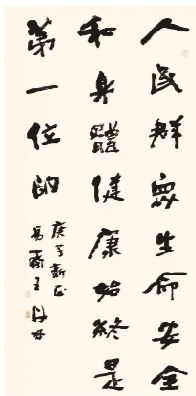 人民群众生命安全
和身體健康始終是
第一位的
庚子新正
易齋王